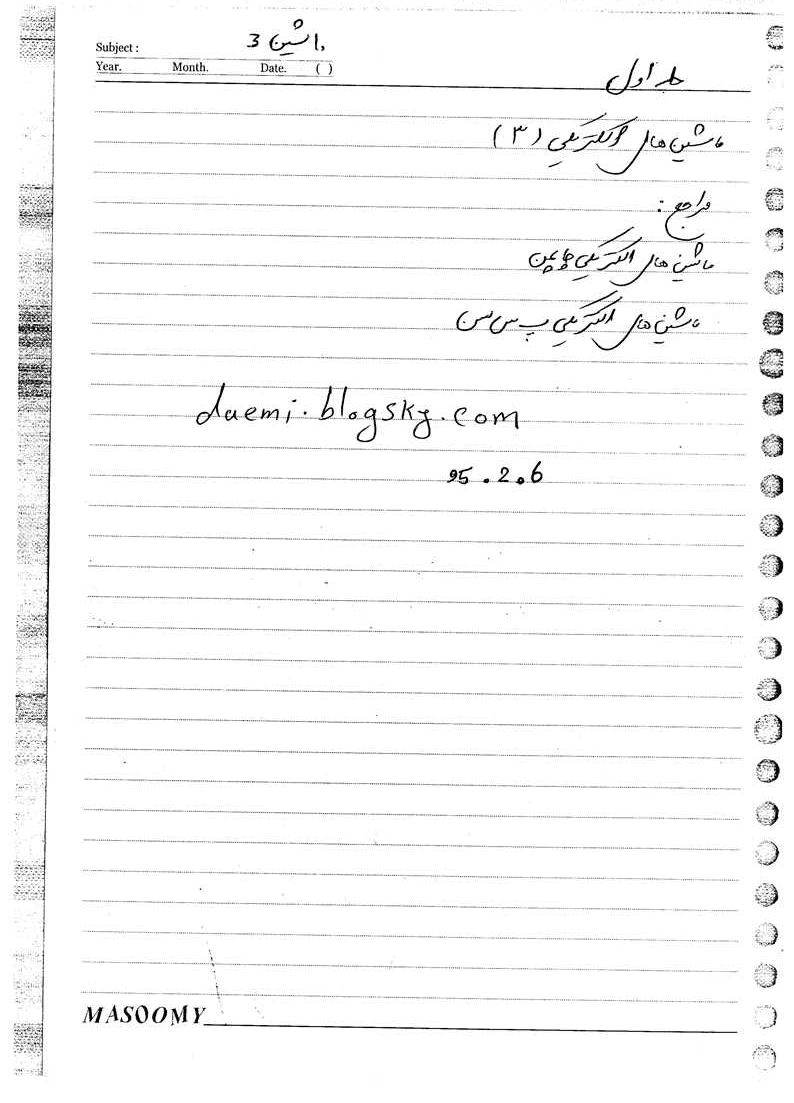 Subject : ماشین 3
Year. Month. Date. ( )
جلسه اول
ماشین های الکتریکی (۳)
مراجع :
ماشین های الکتریکی چاپمن
ماشین های الکتریکی پ س سن
daemi.blogsky.com
95.2.6
MASOOMY